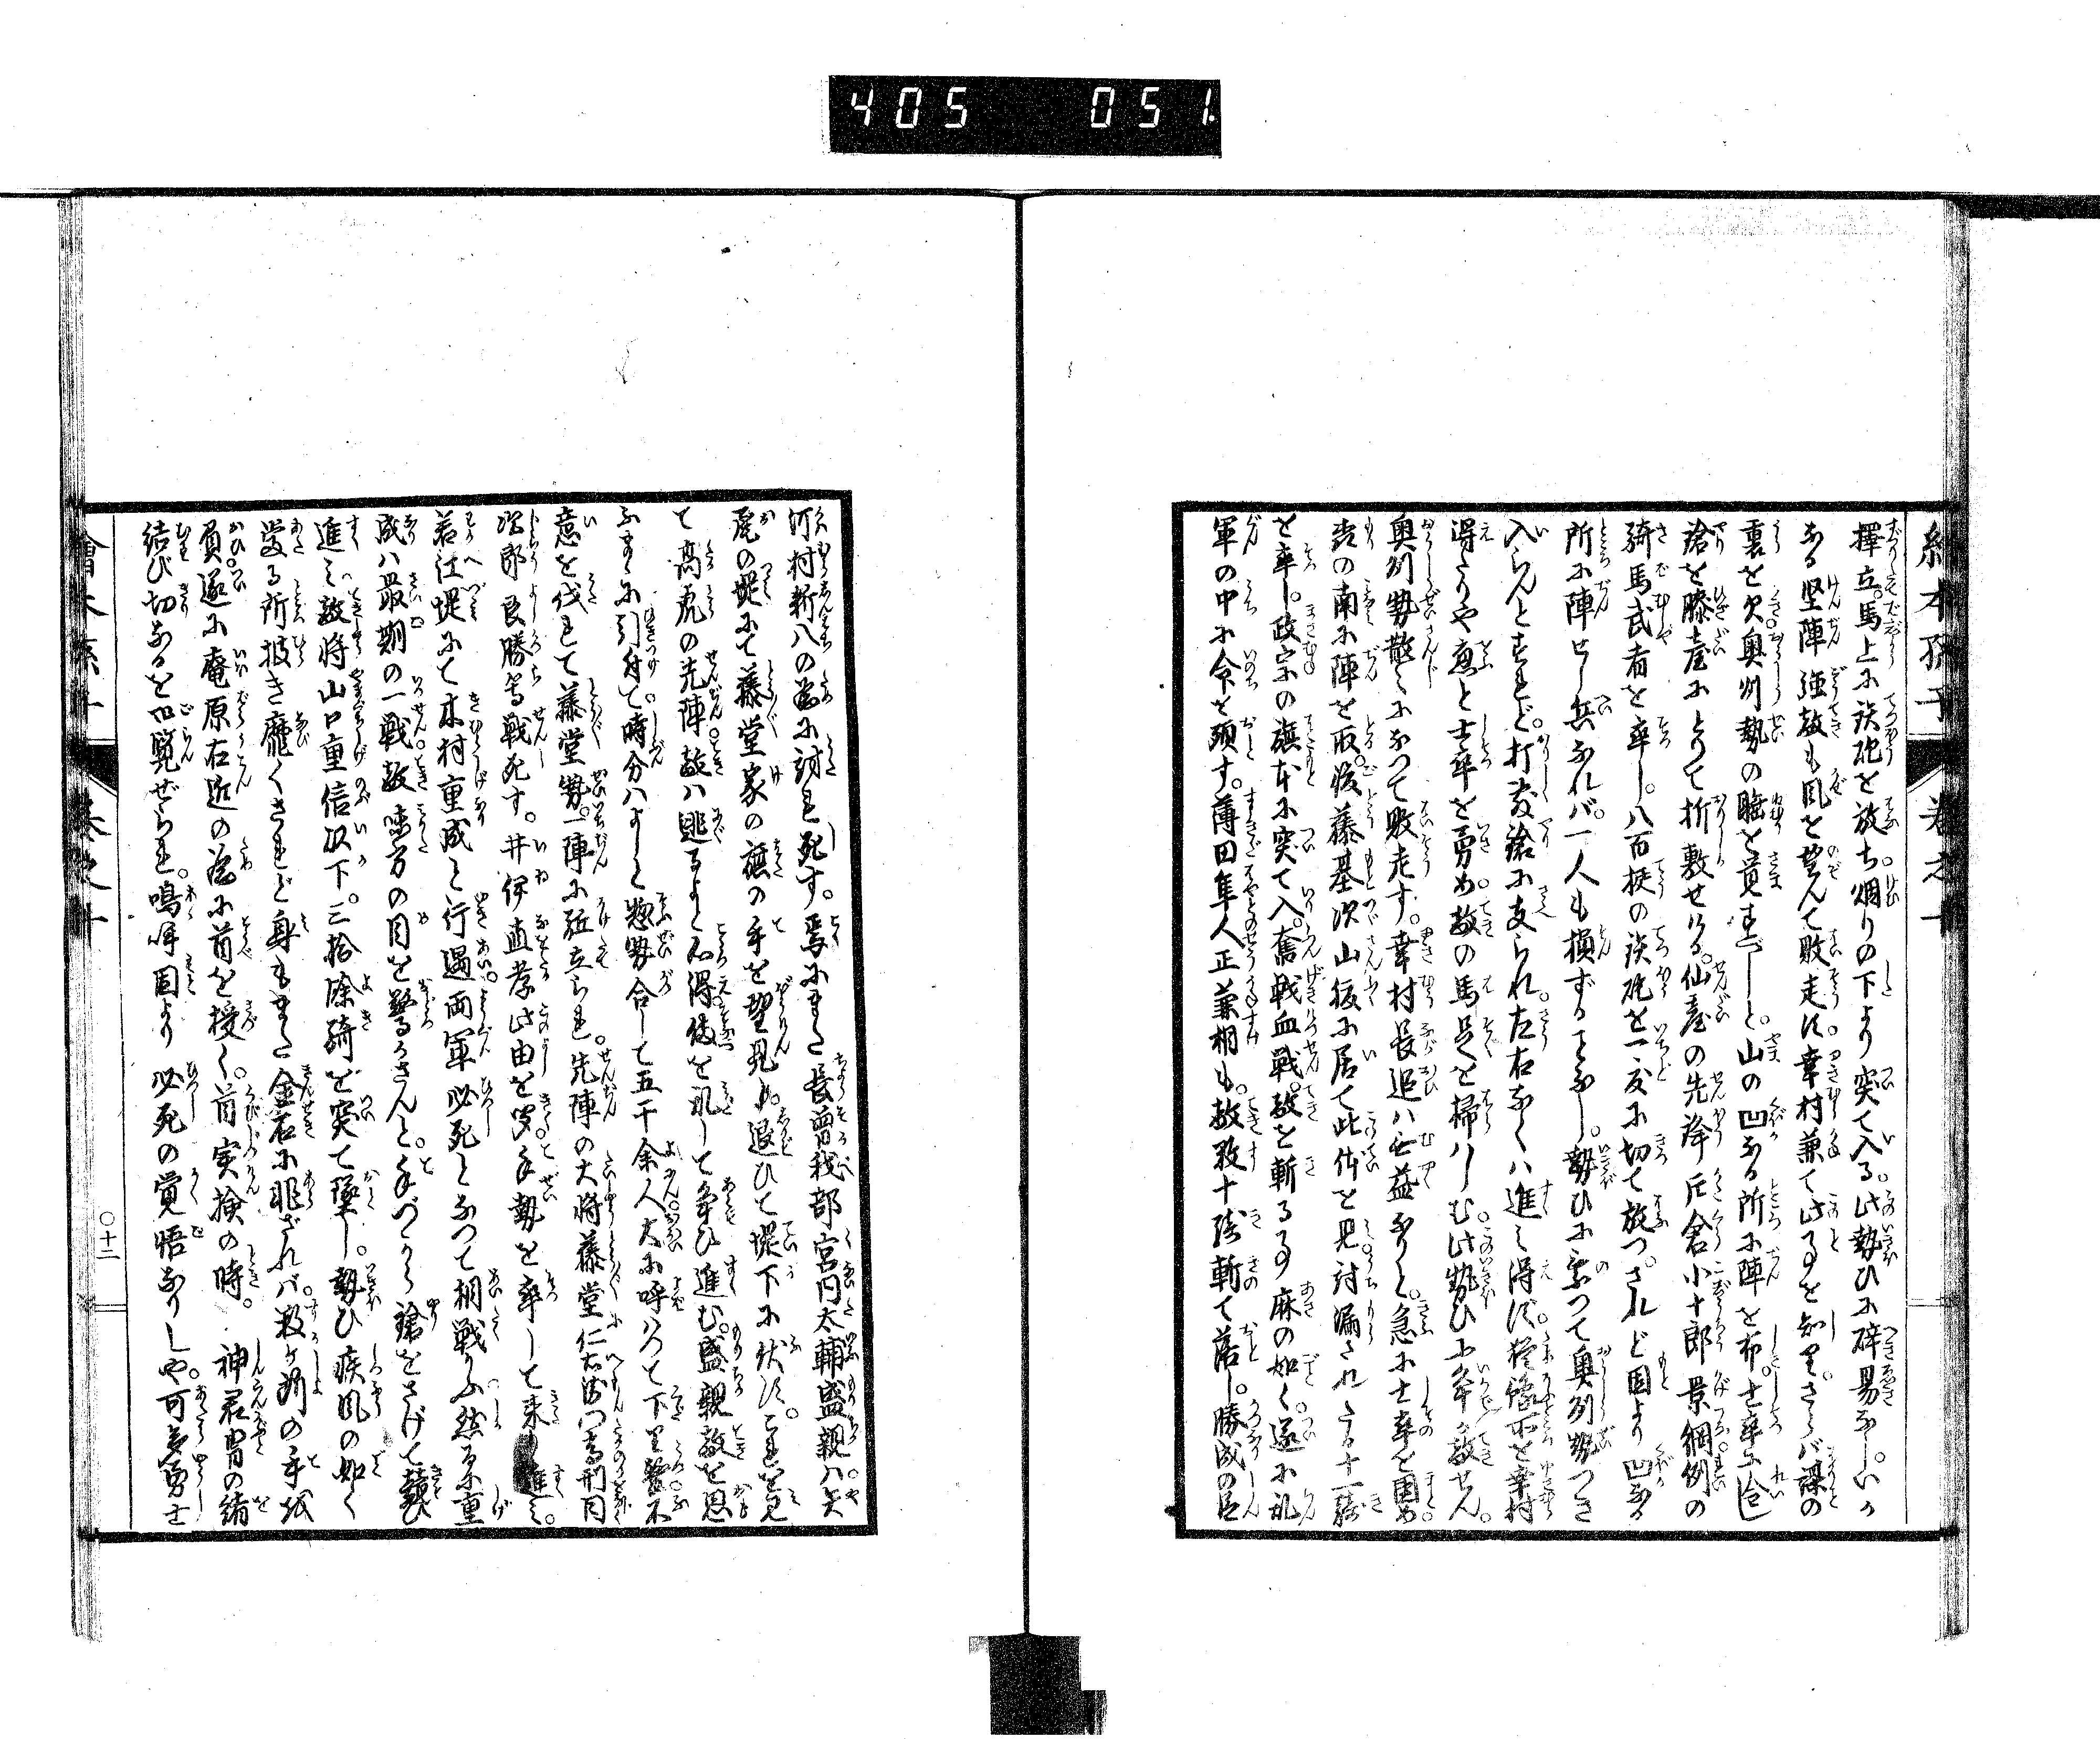 405 051
繪本孫子 巻之十
擇立。馬上に鉄砲を放ち烟りの下より突て入る。此勢ひに辟易なし。いか
なる堅陣強敵も風を望んで敗走す。幸村兼て此事を知り。さらバ謀の
裏を欠奥州勢の睡を覚すべしと。山の凹なる所に陣を布。士卒に令し
鎗を膝臺にとりて折敷せける。仙臺の先鋒片倉小十郎景綱例の
騎馬武者を卒し。八百挺の鉄砲を一度に切て放つ。されど固より凹なる
所に陣せし兵なれバ。一人も損ずることなし。勢ひに乗つて奥州勢つき
入らんとすれど。打敷鎗に支られ。左右なくハ進み得ず。猶豫所を幸村
得たりや應と士卒を勇め敵の馬足を掃ハしむ。此勢ひに争か敵せん。
奥州勢散〻になつて敗走す。幸村長追ハ無益なりと。急に士卒を圓め
の南に陣を取。後藤基次山後に居て此体を見討漏されたる十一騎
を卒し。政宗の旗本に突て入。奮戦血戦。敵を斬る事麻の如く。遂に乱
軍の中に命を頭す。薄田隼人正兼相も。敵数十騎斬て落し。勝成の臣
河村新八の為に討れ死す。爰にまた長曽我部宮内太輔盛親ハ矢
尾の堤にて藤堂家の旗の手を望見て。退ひて堤下に伏す。これを見
て高虎の先陣。敵ハ逃るよと心得備を乱して争ひ進む。盛親敵を思
ふまゝに引付て。時分ハよしと惣勢合して五千余人大に呼ハつて下り墜不
意を伐れて藤堂勢。一陣に追立られ。先陣の大将藤堂仁右衛門高刑同
次郎良勝等戦死す。井伊直孝此由を聞手勢を卒して来り進み。
若江堤にて木村重成と行遇両軍必死となつて相戦ふ然るに重
成ハ最期の一戦敵味方の目を驚かさんと。手づから鎗をさげて競ひ
進み敵将山口重信以下。三拾余騎を突て墜し。勢ひ疾風の如く
當る所披き靡くされど身もまた金石に非ざれバ。数ケ所の手疵
負。遂に庵原右近の為に首を授く。首実検の時。神君冑の緒
結び切なるを御覧ぜられ。鳴呼固より必死の覚悟なりしや。可惜勇士
繪本孫子 巻之十
〇十二